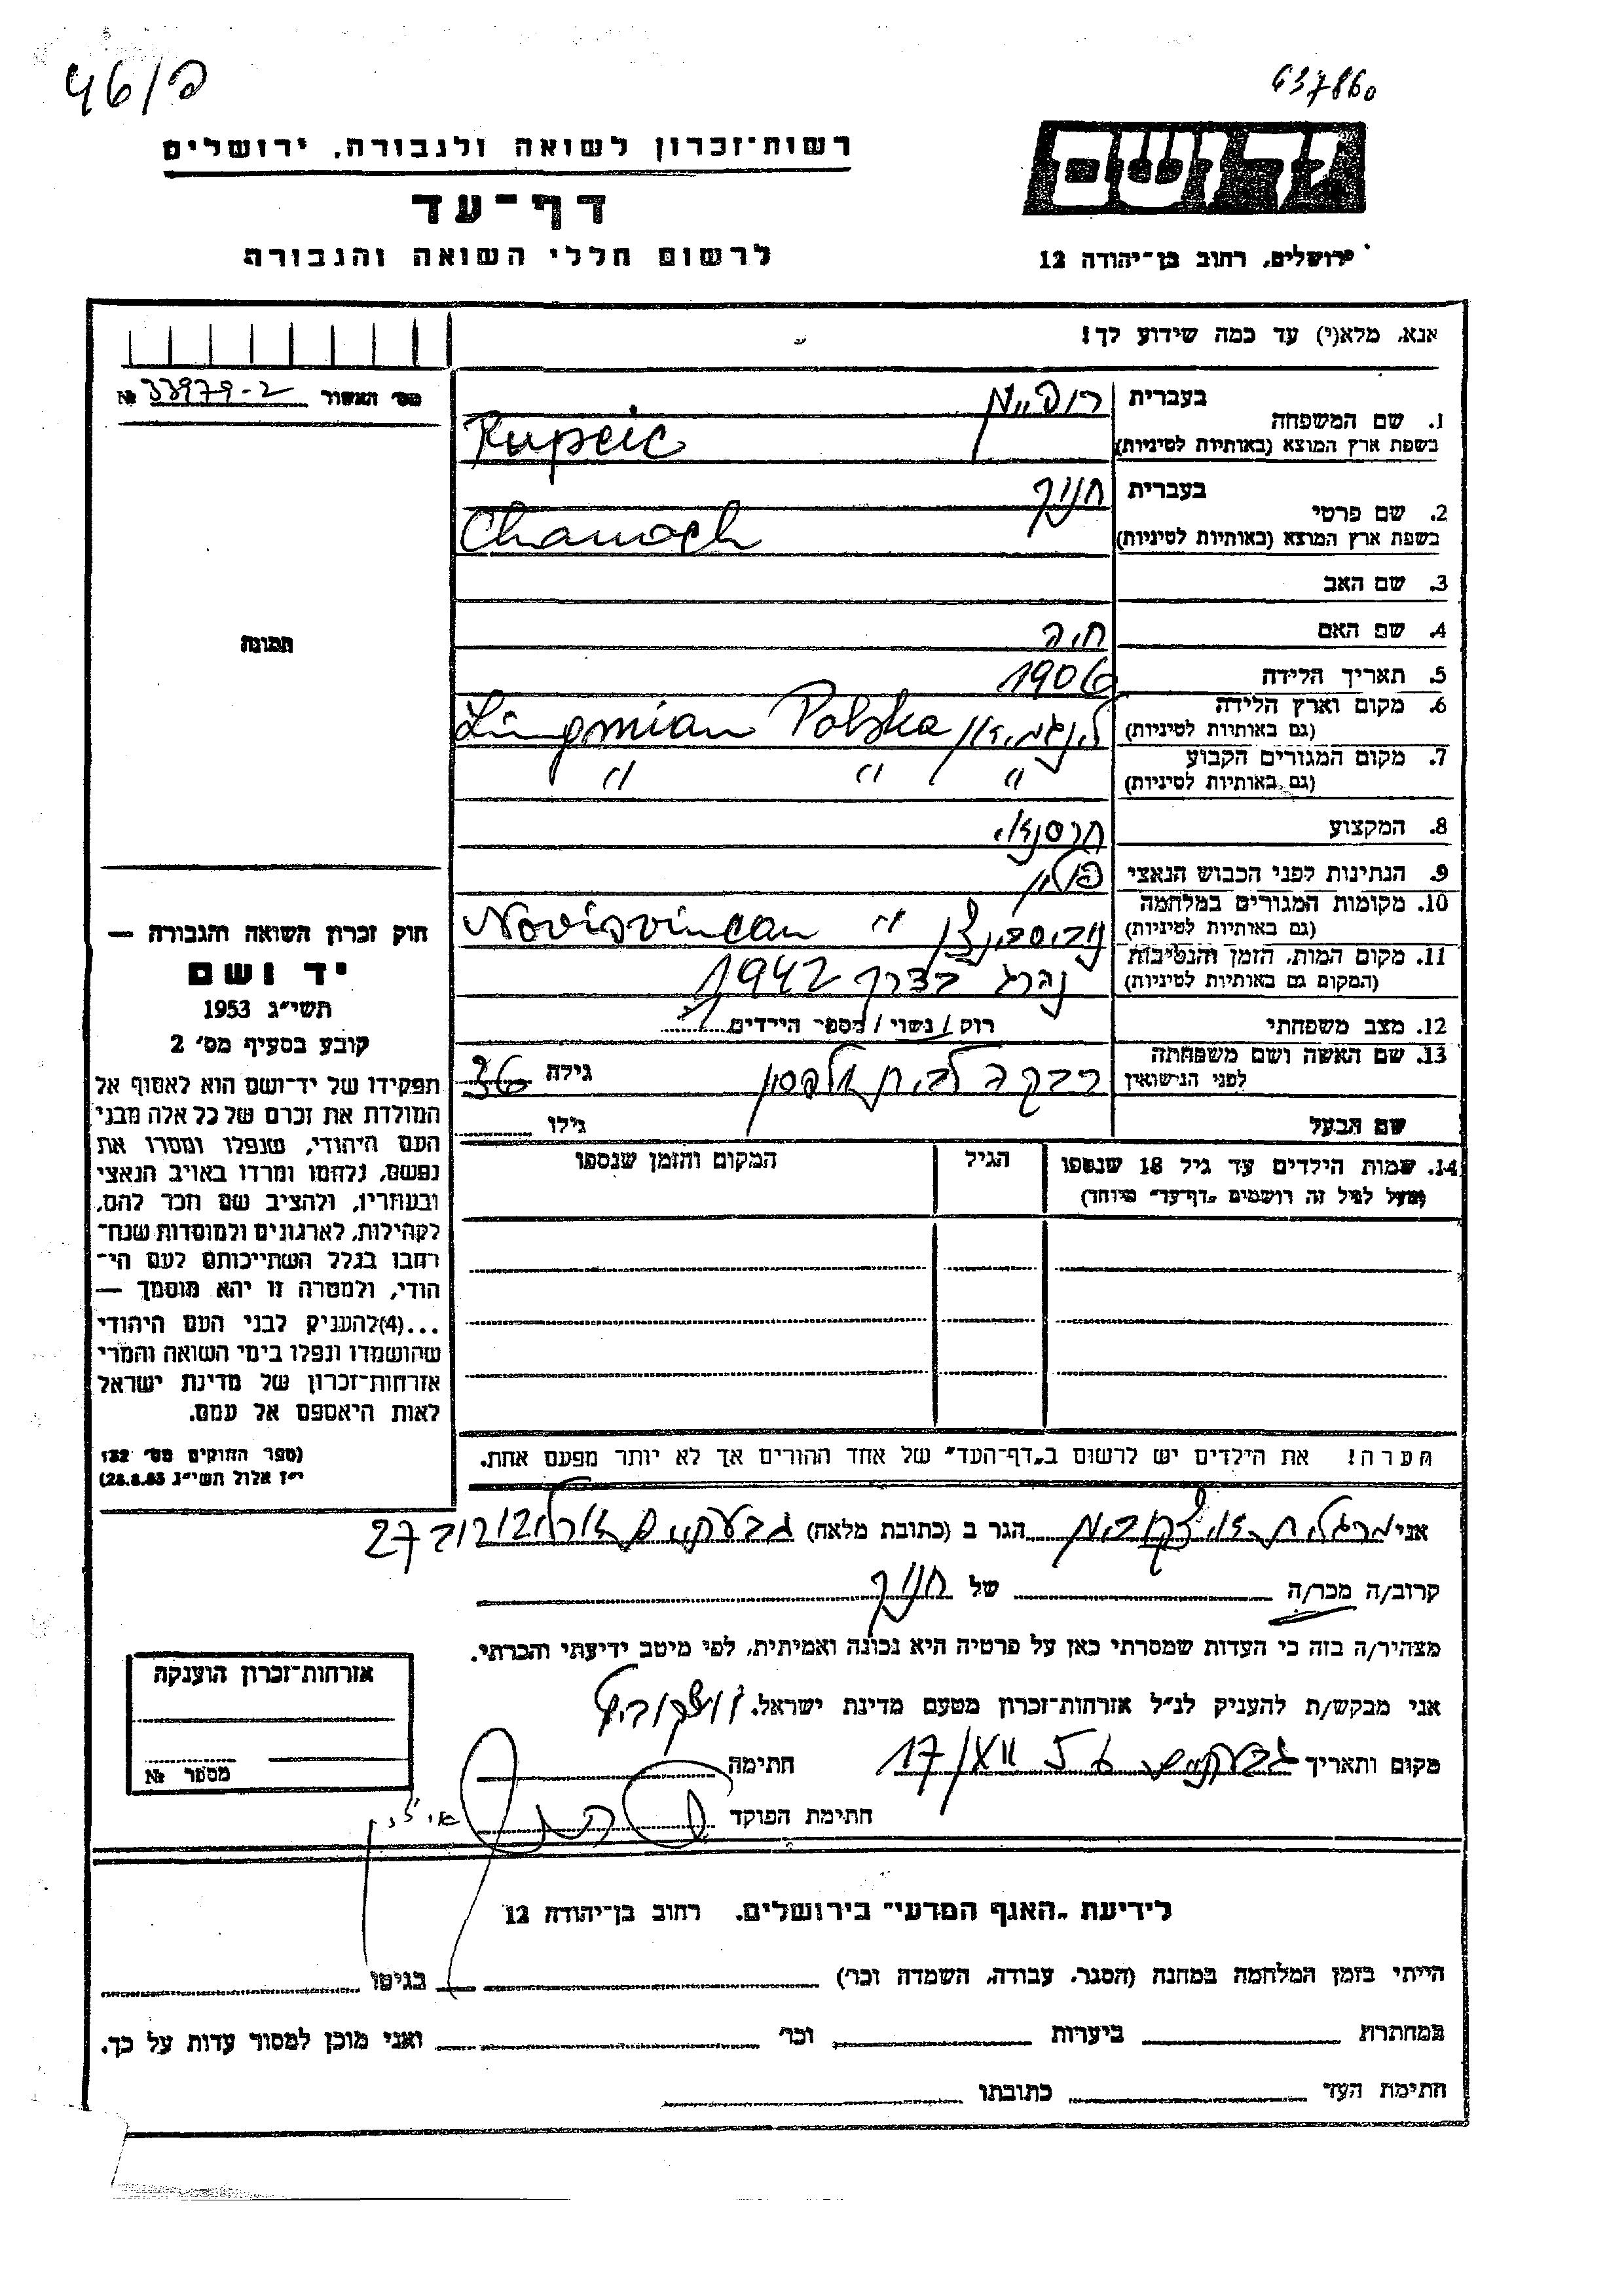 פ/46
637860
יד ושם
ירושלים, רחוב בן־יהודה 12
רשות־זכרון לשואה ולגבורה, ירושלים
דף־עד
לרשום חללי השואה והגבורה
אנא, מלא(י) עד כמה שידוע לך!
1. שם המשפחה
בעברית
בשפת ארץ המוצא (באותיות לטיניות)
Rupeic
2. שם פרטי
בעברית חנוך
בשפת ארץ המוצא (באותיות לטיניות) Chanoch
3. שם האב
4. שם האם חיה
5. תאריך הלידה 1906
6. מקום וארץ הלידה
(גם באותיות לטיניות)
Lingmian Polska
7. מקום המגורים הקבוע
(גם באותיות לטיניות)
" " "
8. המקצוע
9. הנתינות לפני הכבוש הנאצי פולין
10. מקומות המגורים במלחמה
(גם באותיות לטיניות)
Novisvincan "
11. מקום המות, הזמן והנסיבות
(המקום גם באותיות לטיניות)
נהרג בדרך 1942
12. מצב משפחתי רוק/נשוי/מספר הילדים
13. שם האשה ושם משפחתה
לפני הנישואין
רבקה לבית גילה 36
שם הבעל גילו
14. שמות הילדים עד גיל 18 שנספו
(מעל לגיל זה רושמים „דף־עד" מיוחד)
הגיל
המקום והזמן שנספו
הערה! את הילדים יש לרשום ב„דף־העד" של אחד ההורים אך לא יותר מפעם אחת.
מס׳ האשור № 33979-2
תמונה
חוק זכרון השואה והגבורה —
יד ושם
תשי"ג 1953
קובע בסעיף מס׳ 2
תפקידו של יד־ושם הוא לאסוף אל
המולדת את זכרם של כל אלה מבני
העם היהודי, שנפלו ומסרו את
נפשם, נלחמו ומרדו באויב הנאצי
ובעוזריו, ולהציב שם וזכר להם,
לקהילות, לארגונים ולמוסדות שנח־
רבו בגלל השתייכותם לעם הי־
הודי, ולמטרה זו יהא מוסמך —
...(4)להעניק לבני העם היהודי
שהושמדו ונפלו בימי השואה והמרי
אזרחות־זכרון של מדינת ישראל
לאות היאספם אל עמם.
(ספר החוקים מס׳ 132
י"ז אלול תשי"ג 28.8.53)
אני מרגלית הגר ב (כתובת מלאה) גבעתיים 27
קרוב/ה מכר/ה של חנוך
מצהיר/ה בזה כי העדות שמסרתי כאן על פרטיה היא נכונה ואמיתית, לפי מיטב ידיעתי והכרתי.
אני מבקש/ת להעניק לנ"ל אזרחות־זכרון מטעם מדינת ישראל.
מקום ותאריך גבעתיים 17/XII 56 חתימה
חתימת הפוקד
אזרחות־זכרון הוענקה
מספר №
לידיעת „האגף המדעי" בירושלים, רחוב בן־יהודה 12
הייתי בזמן המלחמה במחנה (הסגר, עבודה, השמדה וכו׳) בגיטו
במחתרת ביערות וכו׳ ואני מוכן למסור עדות על כך.
חתימת העד כתובתו